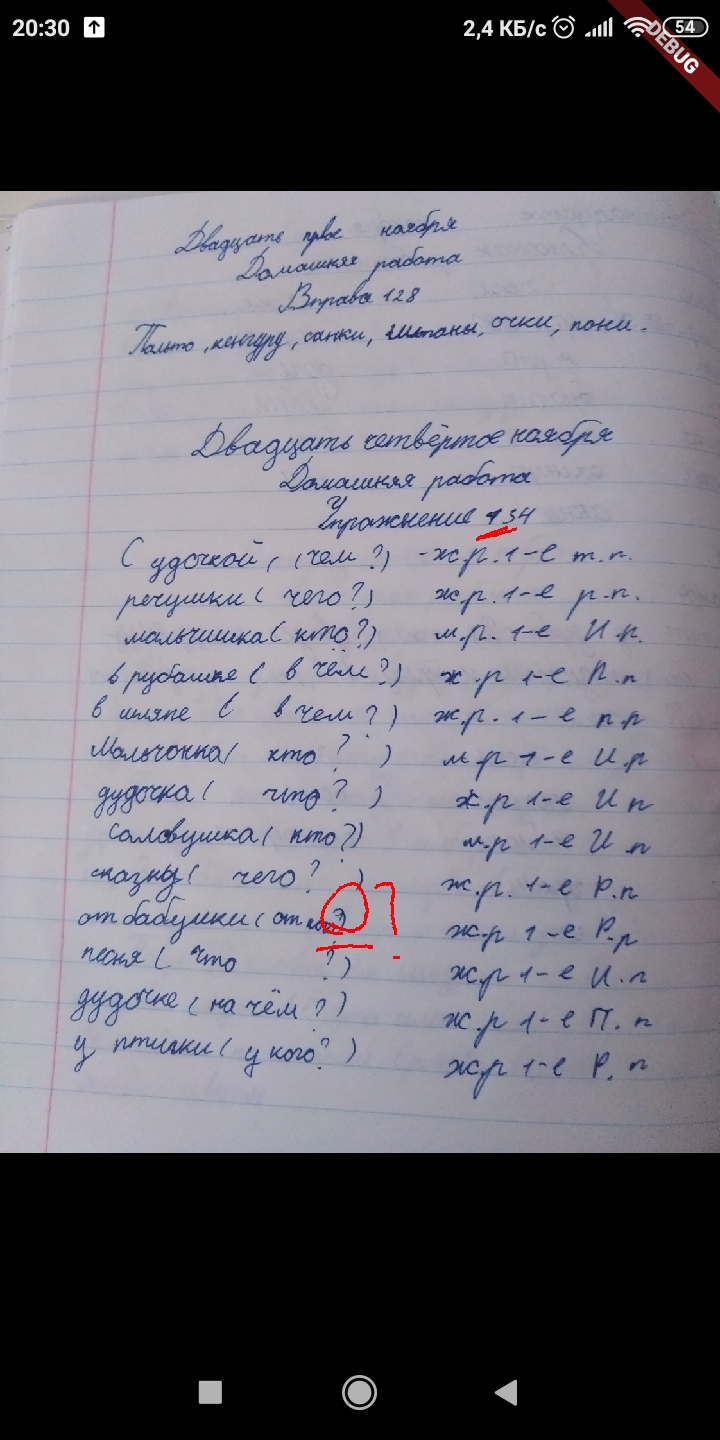 20:30 2,4 КБ/с 54
DEBUG
Двадцать првое ноября
Домашняя работа
Вправа 128
Пальто, кенгуру, санки, штаны, очки, пони.
Двадцать четвёртое ноября
Домашняя работа
Упражнение 134
С удочкой, (чем?) -ж.р. 1-е т.п.
речушки (чего?) ж.р. 1-е р.п.
мальчишка (кто?) м.р. 1-е И.п.
в рубашке (в чём?) ж.р 1-е П.п
в шляпе (в чем?) ж.р. 1-е п.р
Мальчонка (кто?) м.р 1-е И.р
дудочка (что?) ж.р 1-е И п
Соловушка (кто?) м.р 1-е И.п
(чего?) ж.р. 1-е Р.п
от бабушки (от ?) ж.р 1-е Р.р
?
песня (что ?) ж.р 1-е И.п
дудочке (на чём?) ж.р 1-е П.п
у птички (у кого?) ж.р 1-е Р.п